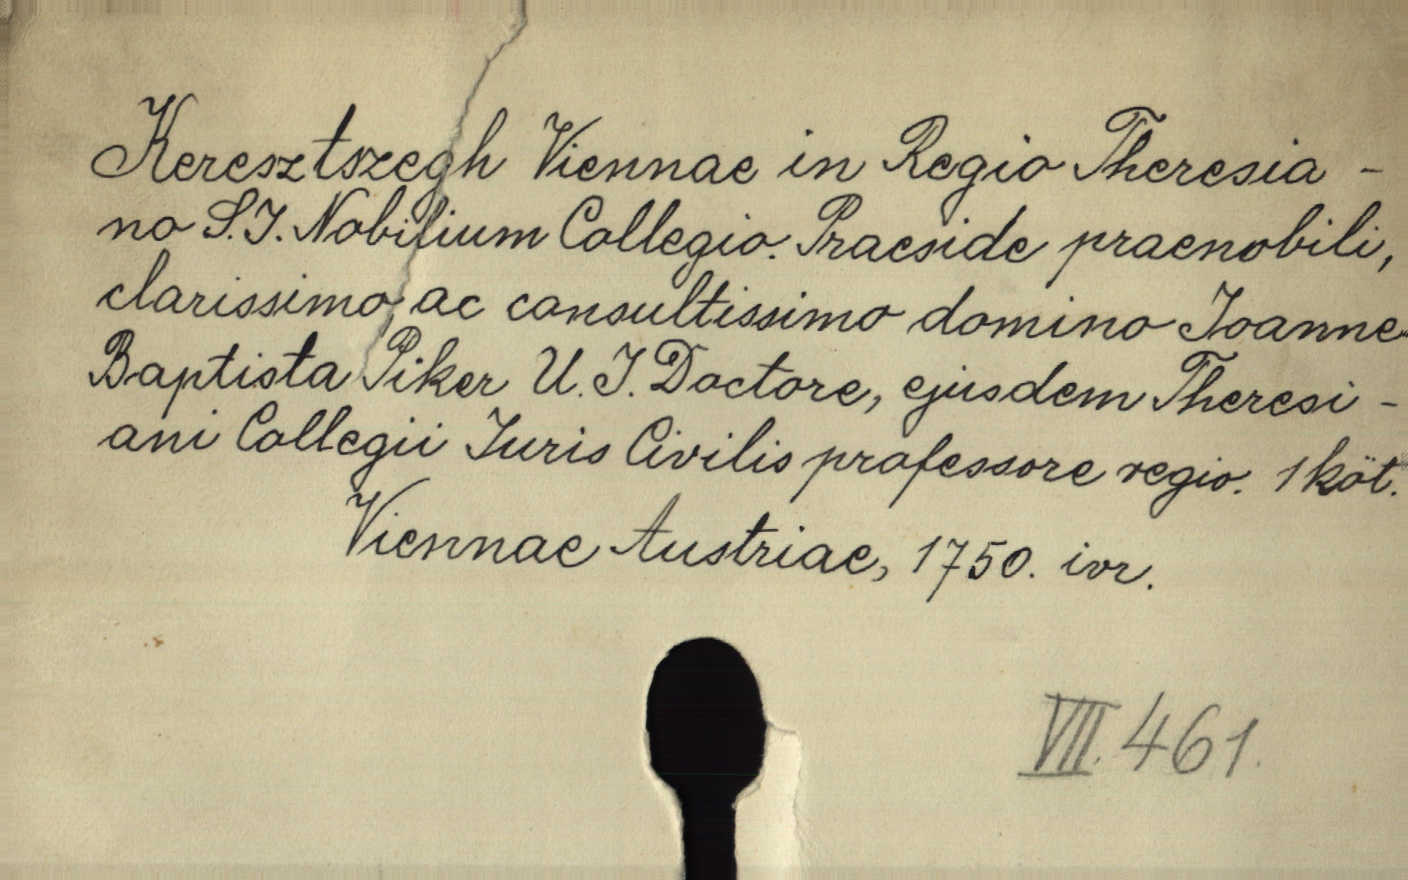 Keresztszegh Viennae in Regio Theresia -
no S.J. Nobilium Collegio. Praeside praenobili,
clarissimo ac consultissimo domino Joanne
Baptista Piker U. J. Doctore, ejusdem Theresi -
ani Collegii Juris Civilis professore regio. 1 köt.
Viennae Austriae, 1750. ivr.
VII. 461.